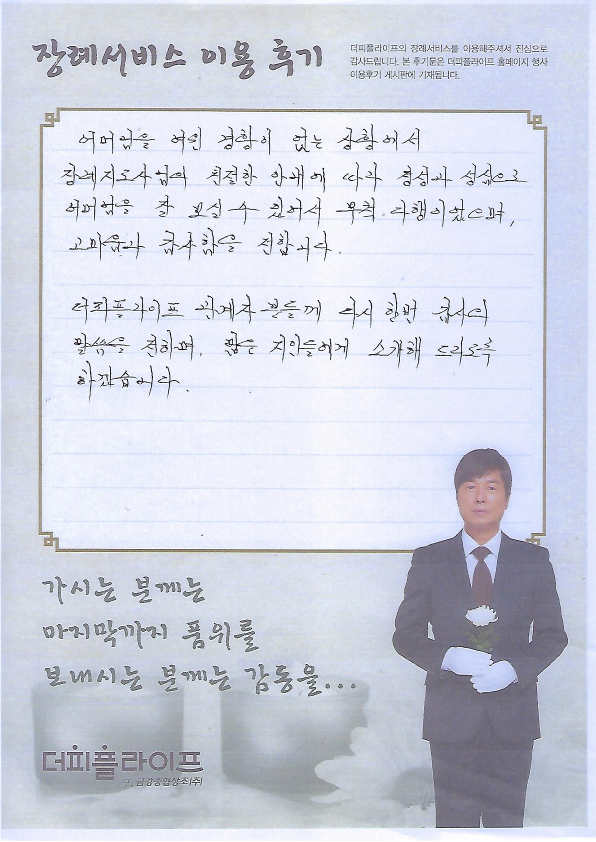 장례서비스 이용 후기
더피플라이프의 장례서비스를 이용해주셔서 진심으로
감사드립니다. 본 후기문은 더피플라이프 홈페이지 행사
이용후기 게시판에 기재됩니다.
어머님을 여인 경황이 없는 상황에서
장례지도사님의 친절한 안내에 따라 정성과 성심으로
어머님을 잘 보실 수 있어서 무척 다행이었으며,
고마움과 감사함을 전합니다.
더피플라이프 관계자 분들께 다시 한번 감사의
말씀을 전하며, 많은 지인들에게 소개해 드리도록
하겠습니다.
가시는 분께는
마지막까지 품위를
보내시는 분께는 감동을...
더피플라이프
구. 금강종합상조(주)